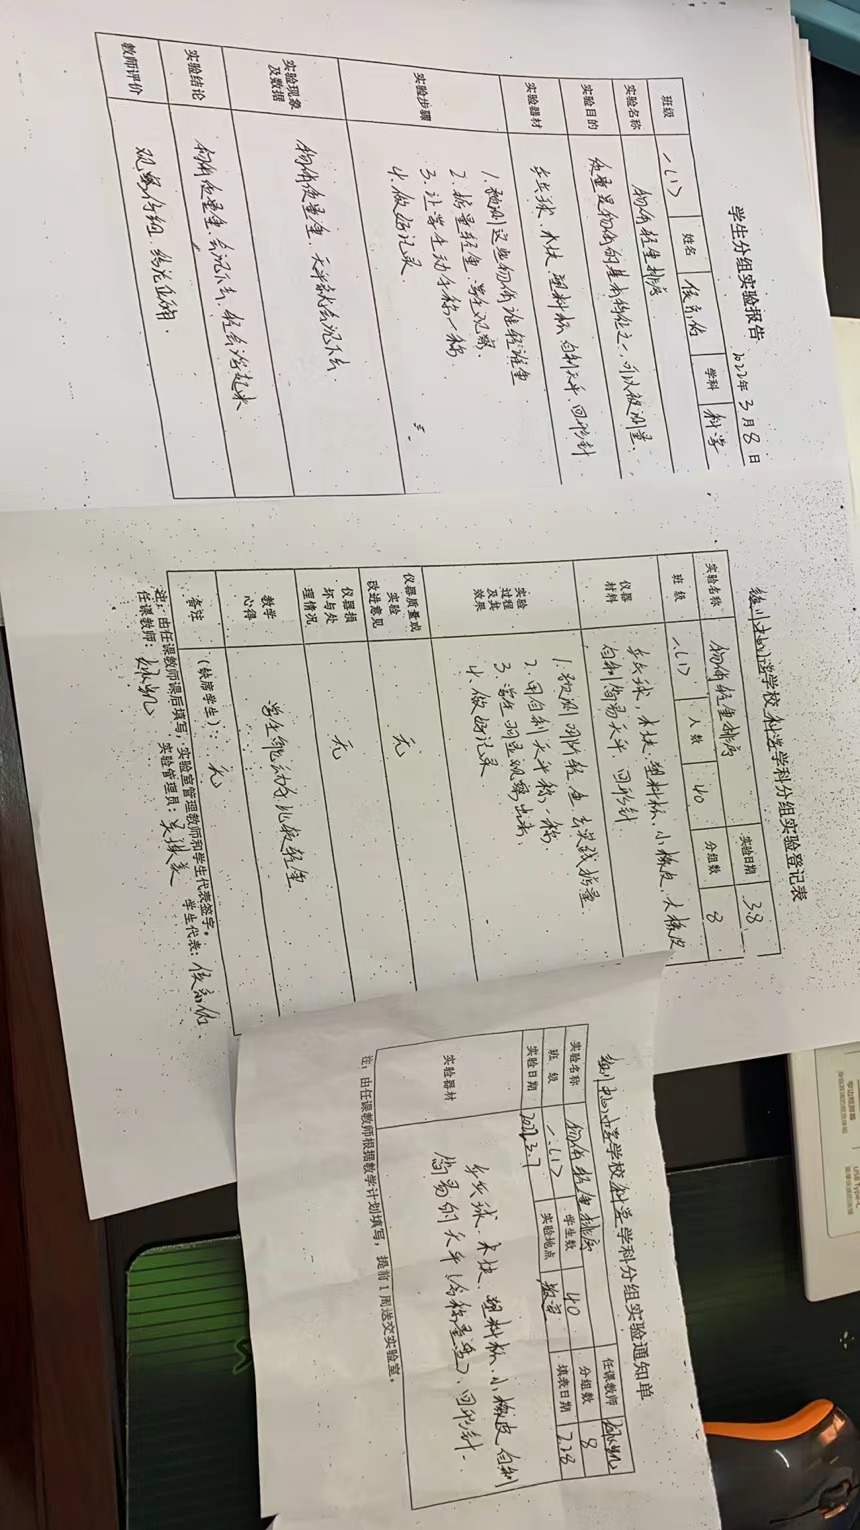 学生分组实验报告
2022年3月8日
班级 一(1) 姓名 学科 科学
实验名称 物体轻重排序
实验目的 质量是物体的基本特征之一,可以被测量.
实验器材 乒乓球、木块、塑料杯、自制天平、回形针
实验步骤
1.预测这些物体谁轻谁重
2.掂量轻重,学生观察,
3.让学生动手称一称
4.做好记录.
实验现象及数据 物体质量重,天平就会沉下去.
实验结论 物体质量重会沉下去,轻会浮起来
教师评价 观察仔细、结论正确.
学校科学学科分组实验登记表
实验名称 物体轻重排序 实验日期 3.8
班级 一(1) 人数 40 分组数 8
仪器材料 乒乓球,木块、塑料杯、小橡皮、大橡皮
自制简易天平 回形针
实验过程及其效果
1.预测
2.用自制天平称一称,
3.学生 观察出来,
4.做好记录
仪器质量或实验改进意见 无
仪器损坏与处理情况 无
教学心得 学生能动手比较轻重
备注 (缺席学生): 无
注:由任课教师课后填写,实验室管理教师和学生代表签字。
任课教师: 实验管理员: 学生代表:
学校科学学科分组实验通知单
实验名称 物体轻重排序 任课教师
班级 一(1) 学生数 40 分组数 8
实验日期 2022.3.7 实验地点 教室 填表日期 2.28
实验器材 乒乓球、木块、塑料杯、小橡皮 自制
简易的天平(含称重盘)、回形针.
注:由任课教师根据教学计划填写,提前1周送交实验室。
窄边框屏幕
USB Type-C